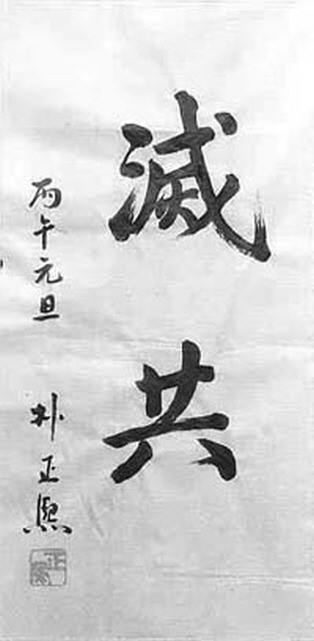 滅共
丙午元旦 朴正熙